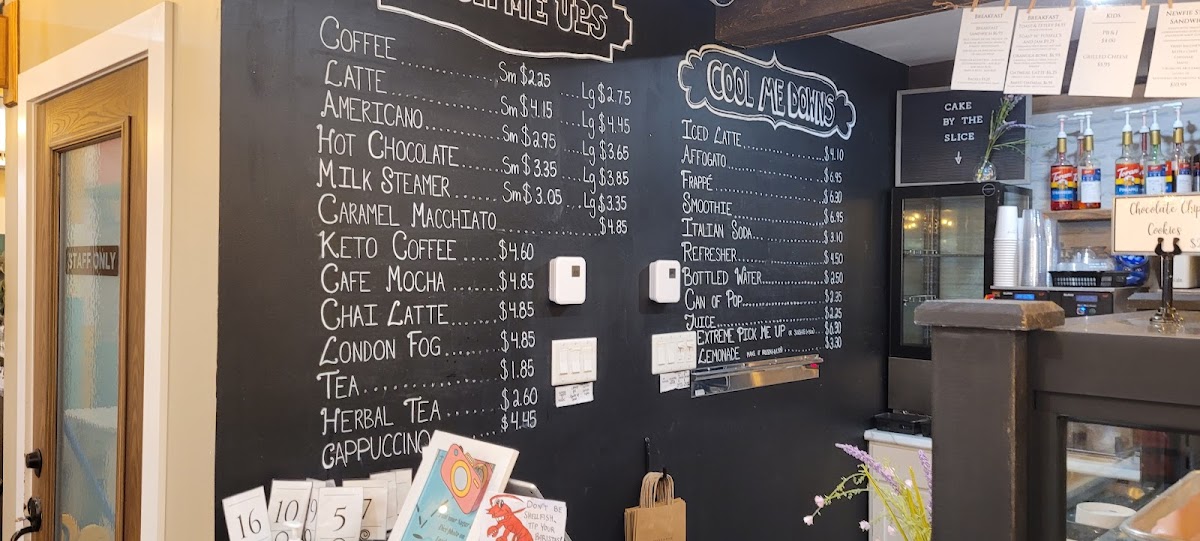 ME UPS
COFFEE Sm $2.25 Lg $2.75
LATTE Sm $4.15 Lg $4.45
AMERICANO Sm $2.95 Lg $3.65
HOT CHOCOLATE Sm $3.35 Lg $3.85
MILK STEAMER Sm $3.05 Lg $3.35
CARAMEL MACCHIATO $4.85
KETO COFFEE $4.60
CAFE MOCHA $4.85
CHAI LATTE $4.85
LONDON FOG $4.85
TEA $1.85
HERBAL TEA $2.60
CAPPUCCINO $4.45
COOL ME DOWNS
ICED LATTE $4.10
AFFOGATO $6.95
FRAPPÉ $6.30
SMOOTHIE $6.95
ITALIAN SODA $3.10
REFRESHER $4.50
BOTTLED WATER $2.50
CAN OF POP $2.35
JUICE $2.25
EXTREME PICK ME UP $6.30
LEMONADE $3.30
STAFF ONLY
CAKE
BY THE
SLICE
BREAKFAST
BREAKFAST
KIDS
PB&J
GRILLED CHEESE
NEWFIE
TORANI
TORANI
Chocolate Chip
Cookies
16
10
9
5
7
DON'T BE
SHELLFISH,
TIP YOUR
BARISTA